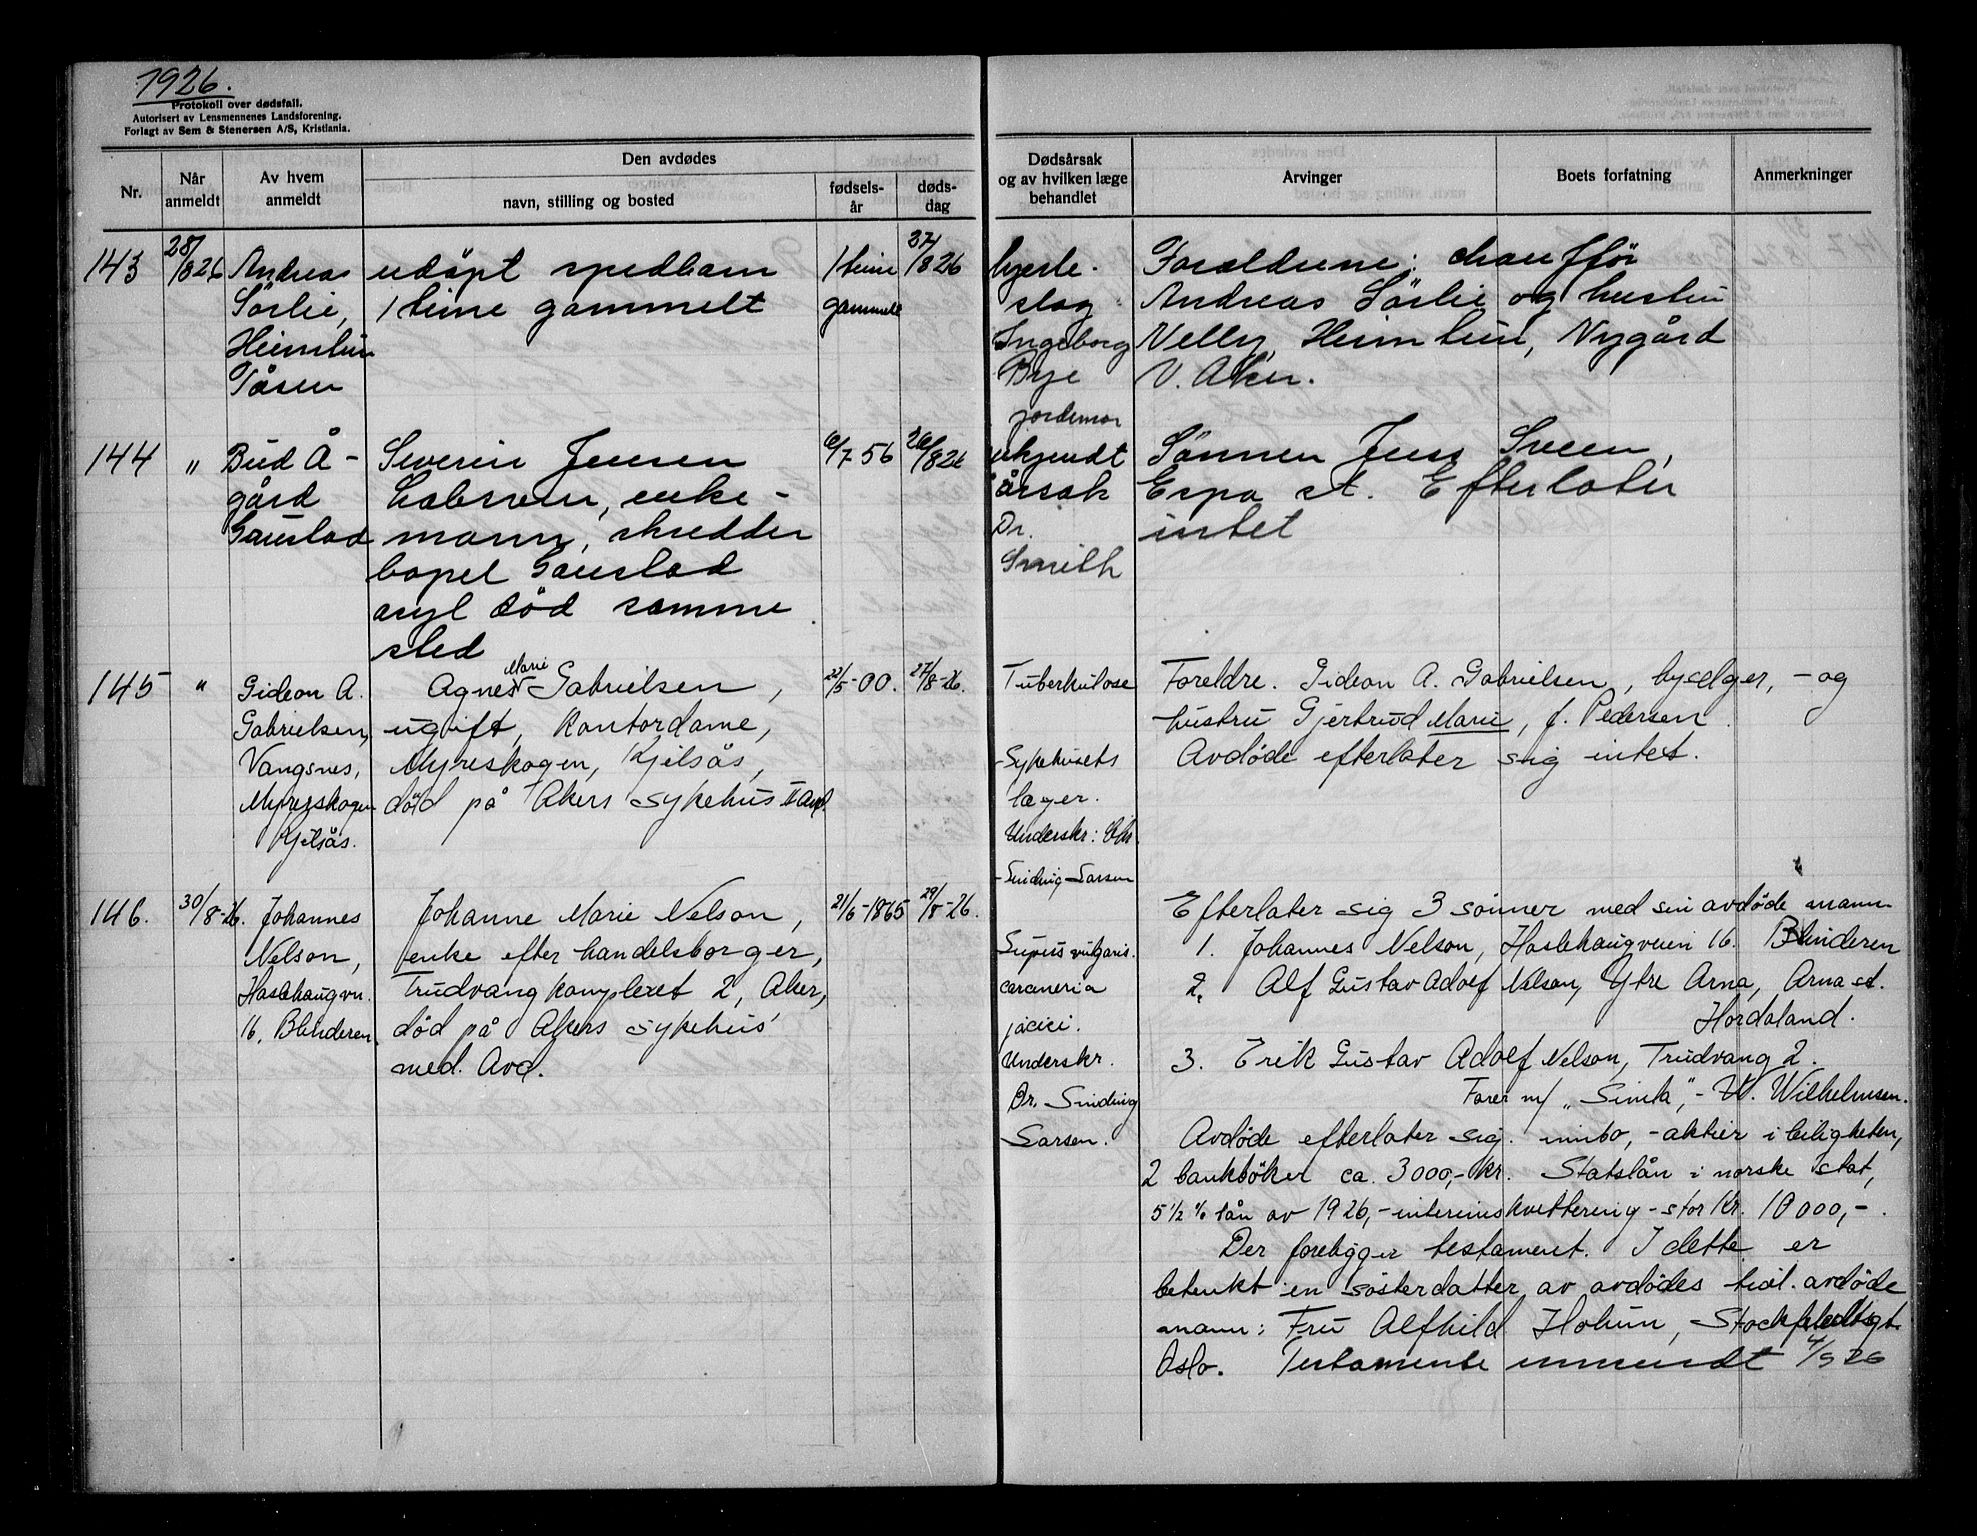 1926.
Protokoll over dødsfall.
Autorisert av Lensmennenes Landsforening.
Forlagt av Sem & Stenersen A/S, Kristiania.
Nr.
Når anmeldt
Av hvem anmeldt
Den avdødes
navn, stilling og bosted
fødsels-
år
døds-
dag
Dødsårsak
og av hvilken læge
behandlet
Arvinger
Boets forfatning
Anmerkninger
143
28/8 26
Andreas
Sörlie,
Heimtun
Tåsen
udöpt spedbarn
1 time gammelt
1 time
gammelt
27/8 26
hjerte-
slag
Ingeborg
Bye
jordemor
Forældrene: chaufför
Andreas Sörlie og hustru
Nelly, Heimtun, Nygård
V. Aker.
144
"
Bud Å-
gård
Gaustad
Severin Jensen
enke-
mann, skredder
bopel Gaustad
asyl död samme
sted
6/7 56
26/8 26
ukjendt
årsak
Dr.
Smith
Sønnen Jens Sveen,
Espa st. Efterlater
intet
145
"
Gideon A.
Gabrielsen,
Vangsnes,
Myrerskogen
Kjelsås.
Agnes Marie Gabrielsen,
ugift, kontordame,
Myreskogen, Kjelsås,
död på Akers sykehus II Avd.
22/5-00.
27/8-26.
Tuberkulose
Sykehusets
læger.
Underskr: Chr.
Sinding-Larsen
Foreldre. Gideon A. Gabrielsen, byselger, - og
hustru Gjertrud Marie, f. Pedersen
Avdöde efterlater sig intet.
146.
30/8-26.
Johannes
Nelson,
Haslehaugvn.
16, Blinderen.
Johanne Marie Nelson,
enke efter handelsborger,
Trudvang komplexet 2, Aker,
död på Akers sykehus
med. Avd.
21/6-1865
29/8-26.
Lupus vulgaris.
Underskr.
Dr. Sinding
Larsen.
Efterlater sig 3 sönner med sin avdöde mann
1. Johannes Nelson, Haslehaugveien 16. Blinderen
2. Alf Gustav Adolf Nelson, Ytre Arna, Arna st.
Hordaland.
3. Erik Gustav Adolf Nelson, Trudvang 2.
m/ - W. Wilhelmsen.
Avdöde efterlater sig. innbo, - aktier i leiligheten,
2 bankböker ca. 3000,- kr. Statslån i norske stat,
5 1/2 % lån av 1926,- interimskvittering - stor Kr. 10000,-.
Der foreligger testament. I dette er
betenkt en sösterdatter av avdödes tidl. avdöde
mann: Fru Alfhild
Oslo. Testamente innsendt 4/9 26